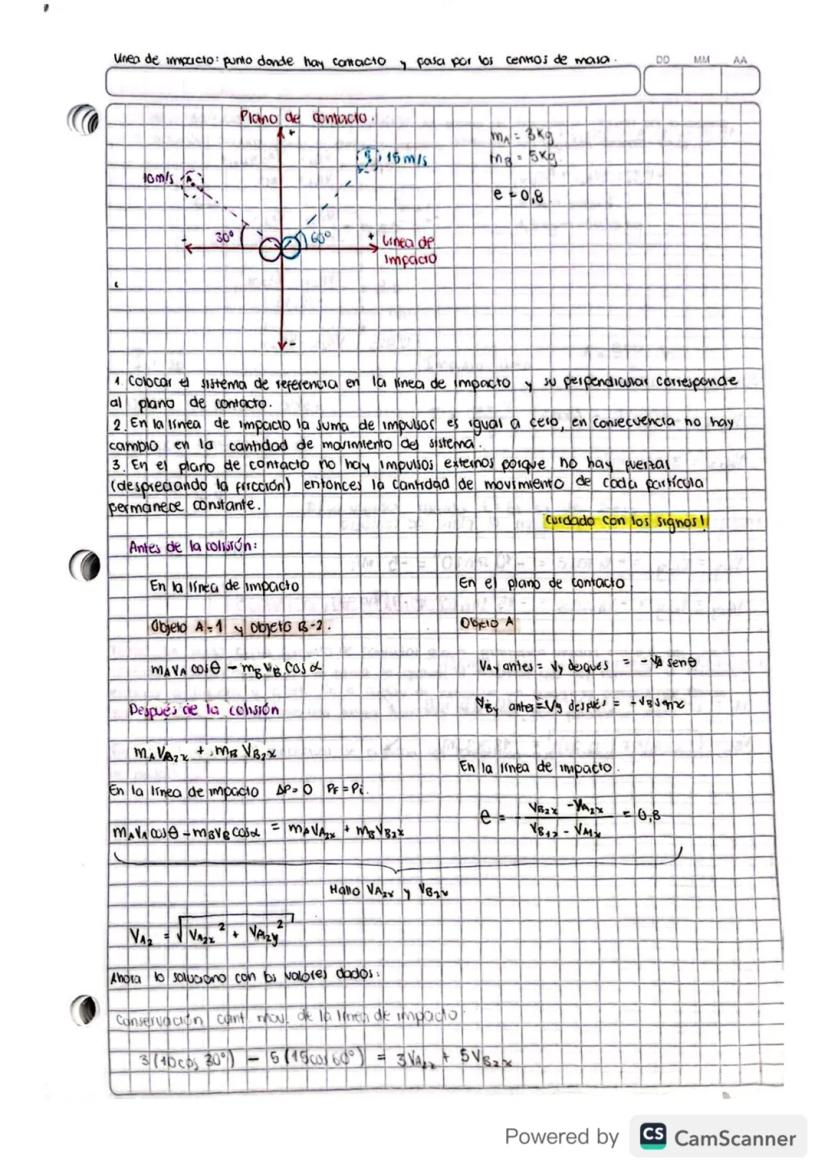 Línea de impacto: punto donde hay contacto y pasa por los centros de masa.
DD MM AA
Plano de contacto.
+
mA = 3kg
mB = 5kg
e = 0,8
10m/s A
B 15 m/s
30° 60°
- + Línea de impacto
-
1. Colocar el sistema de referencia en la línea de impacto y su perpendicular corresponde
al plano de contacto.
2. En la línea de impacto la suma de impulsos es igual a cero, en consecuencia no hay
cambio en la cantidad de movimiento del sistema.
3. En el plano de contacto no hay impulsos externos porque no hay fuerzas
(despreciando la fricción) entonces la cantidad de movimiento de cada partícula
permanece constante.
Cuidado con los signos!
Antes de la colisión:
En la línea de impacto
En el plano de contacto
Objeto A=1 y Objeto B=2.
Objeto A
mAVA cosθ - mBVB cosα
VAy antes = Vy después = -VA senθ
Después de la colisión
VBy antes = Vy después = -VB senα
mAVA2x + mBVB2x
En la línea de impacto.
En la línea de impacto ΔP=0 PF=Pi.
e = (VB2x - VA2x) / (VB1x - VA1x) = 0,8
mAVA cosθ - mBVB cosα = mAVA2x + mBVB2x
Hallo VA2x y VB2x
VA2 = √(VA2x² + VA2y²)
Ahora lo soluciono con los valores dados:
Conservación cant mov. de la línea de impacto
3(10cos 30°) - 5(15cos 60°) = 3VA2x + 5VB2x
Powered by CS CamScanner